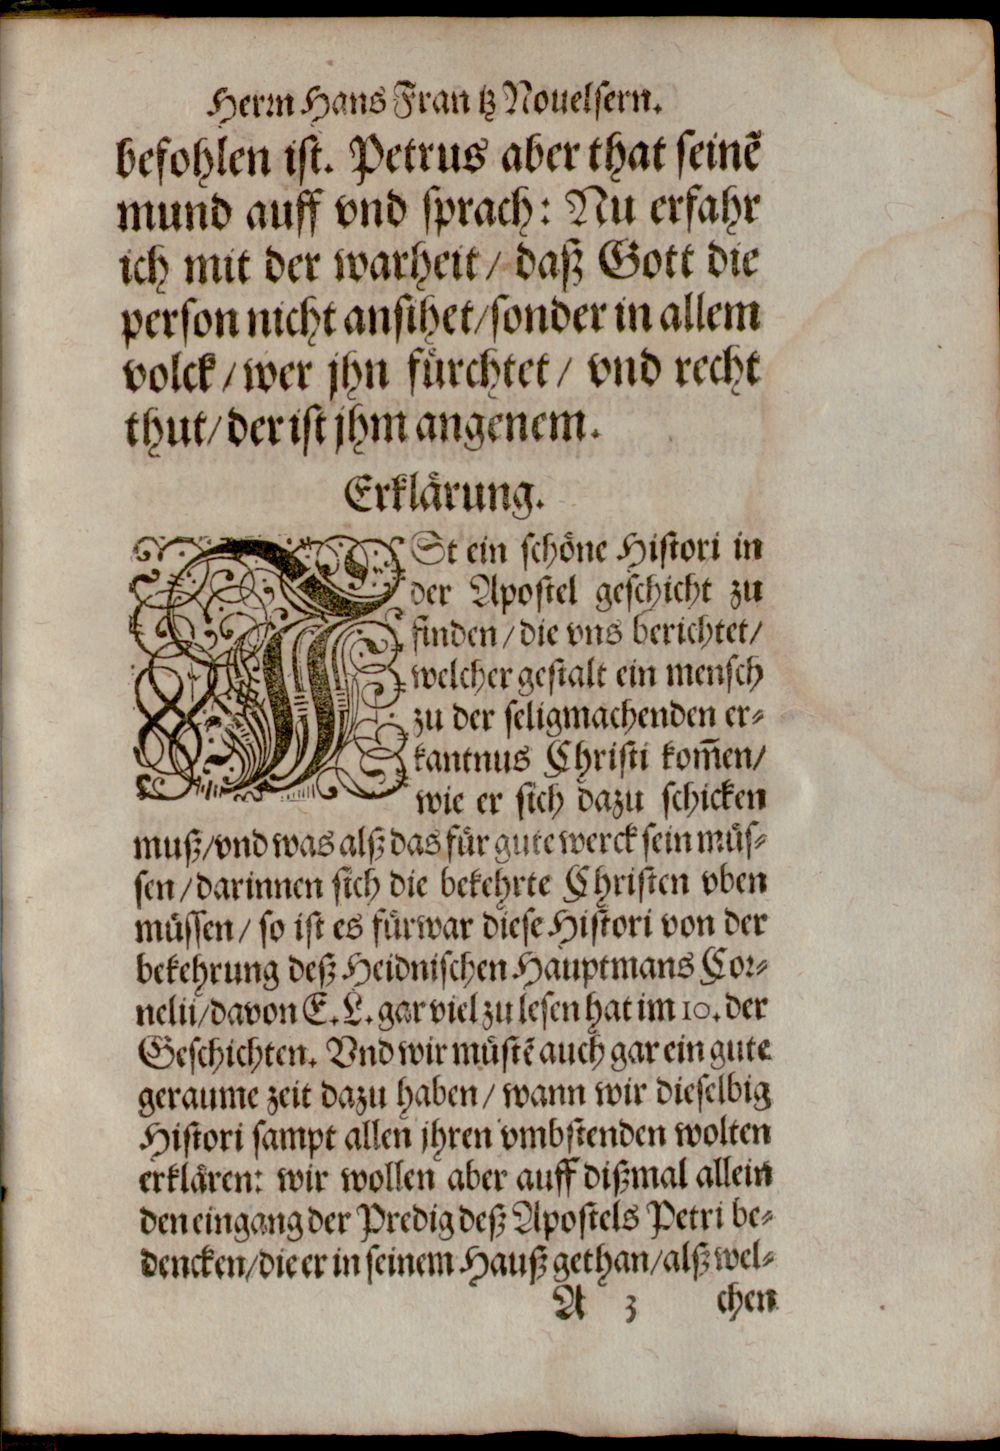 Herrn Hans Frantz Nouelsern.
befohlen ist. Petrus aber that seinẽ
mund auff vnd sprach: Nu erfahr
ich mit der warheit/ daß Gott die
person nicht ansihet/sonder in allem
volck/wer jhn fürchtet/ vnd recht
thut/der ist jhm angenem.
Erklärung.
ISt ein schöne Histori in
der Apostel geschicht zu
finden/die vns berichtet/
welcher gestalt ein mensch
zu der seligmachenden er-
kantnus Christi kom̃en/
wie er sich dazu schicken
muß/vnd was alß das für gute werck sein müs-
sen/darinnen sich die bekehrte Christen vben
müssen/ so ist es fürwar diese Histori von der
bekehrung deß Heidnischen Hauptmans Cor-
nelii/davon E.L. gar viel zu lesen hat im 10. der
Geschichten. Vnd wir müstẽ auch gar ein gute
geraume zeit dazu haben/ wann wir dieselbig
Histori sampt allen jhren vmbstenden wolten
erklären: wir wollen aber auff dißmal allein
den eingang der Predig deß Apostels Petri be-
dencken/die er in seinem Hauß gethan/alß wel-
A 3 chen